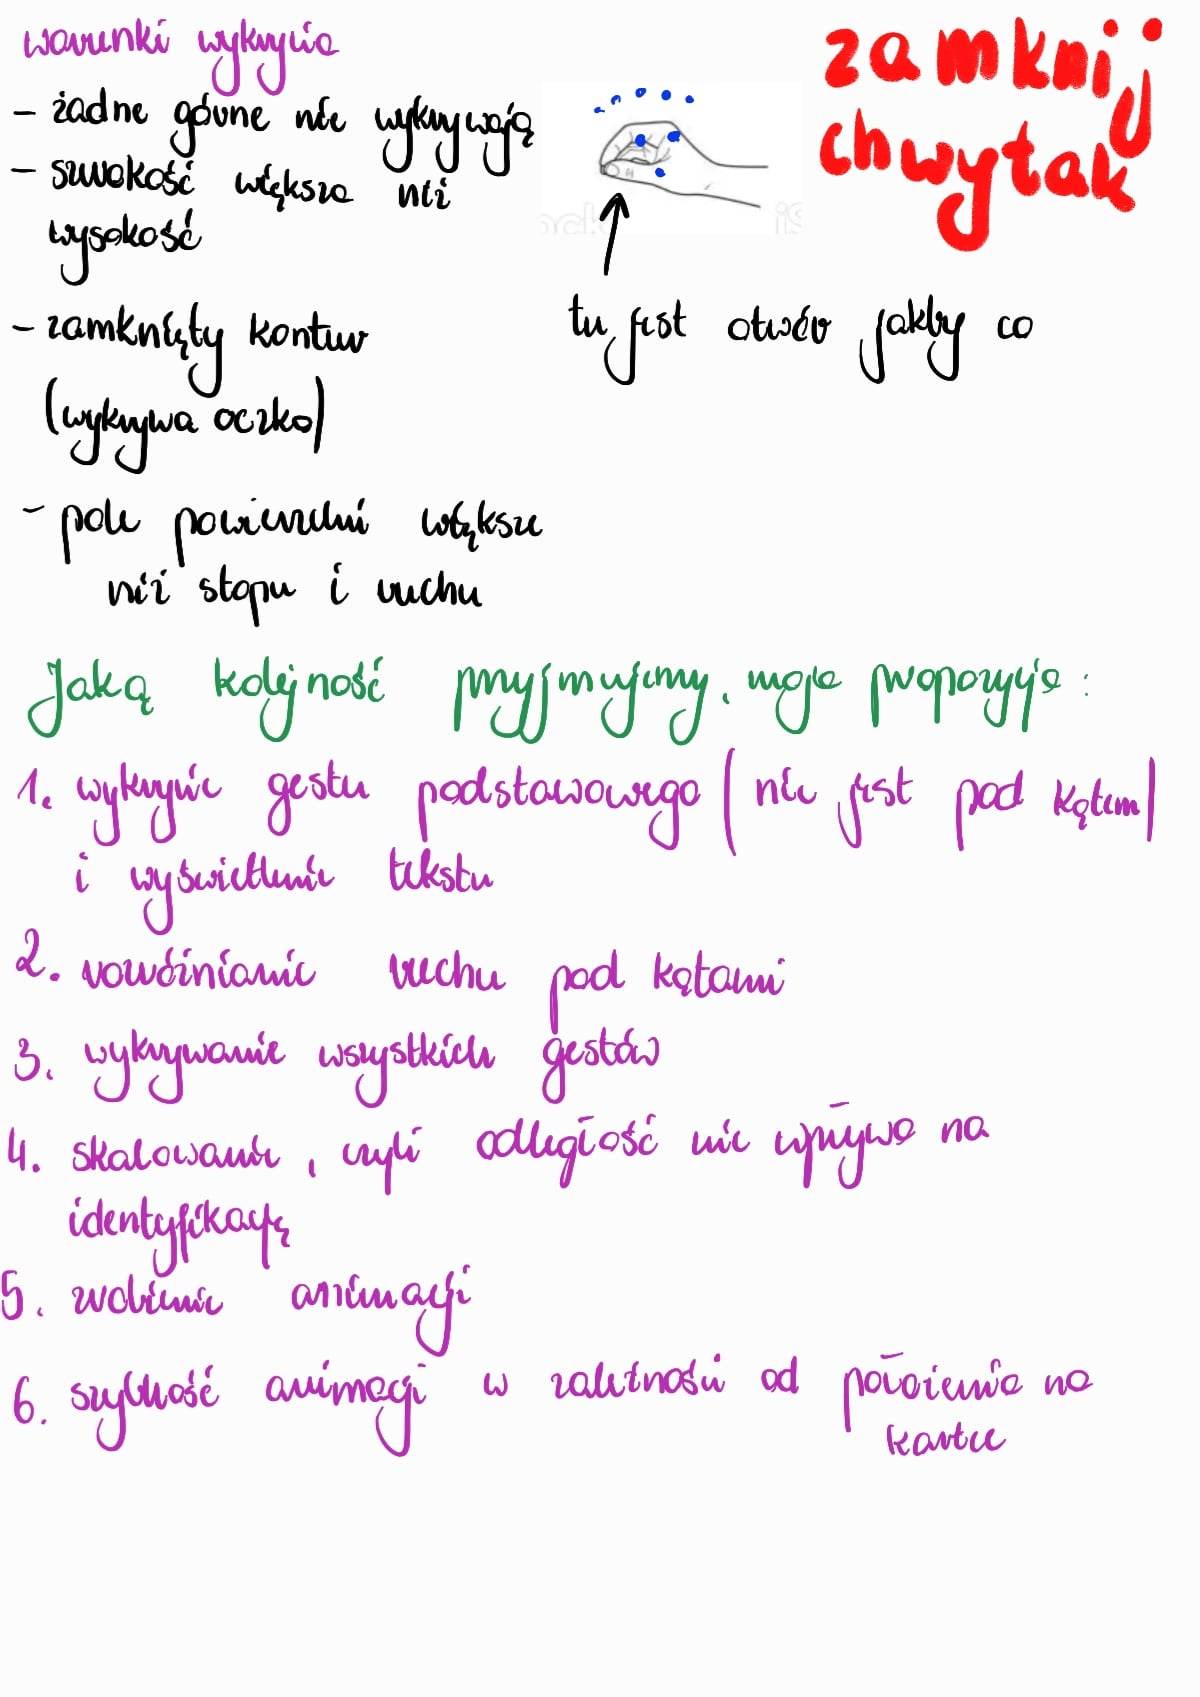 warunki wykrycia
zamknij
chwytak
- żadne górne nie wykrywają
- szerokość większa niż
wysokość
- zamknięty kontur
(wykrywa oczko)
tu jest otwór jakby co
- pole powierzchni większe
niż stopu i ruchu
Jaką kolejność przyjmujemy, moja propozycja:
1. wykrycie gestu podstawowego (nie jest pod kątem)
i wyświetlenie tekstu
2. rozróżnianie ruchu pod kątami
3. wykrywanie wszystkich gestów
4. skalowanie, czyli odległość nie wpływa na
identyfikację
5. zrobienie animacji
6. szybkość animacji w zależności od położenia na
kartce